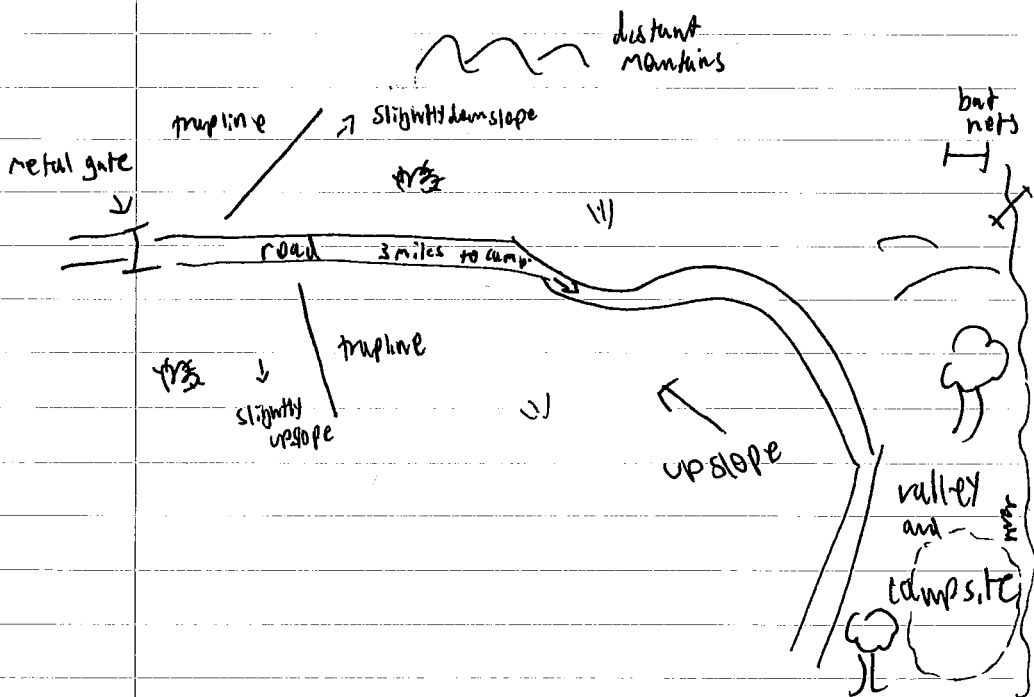 distant
mantains
bat
nets
trapline
slightly downslope
metal gate
road 3 miles to camp
trapline
slightly
upslope
upslope
valley
and
campsite